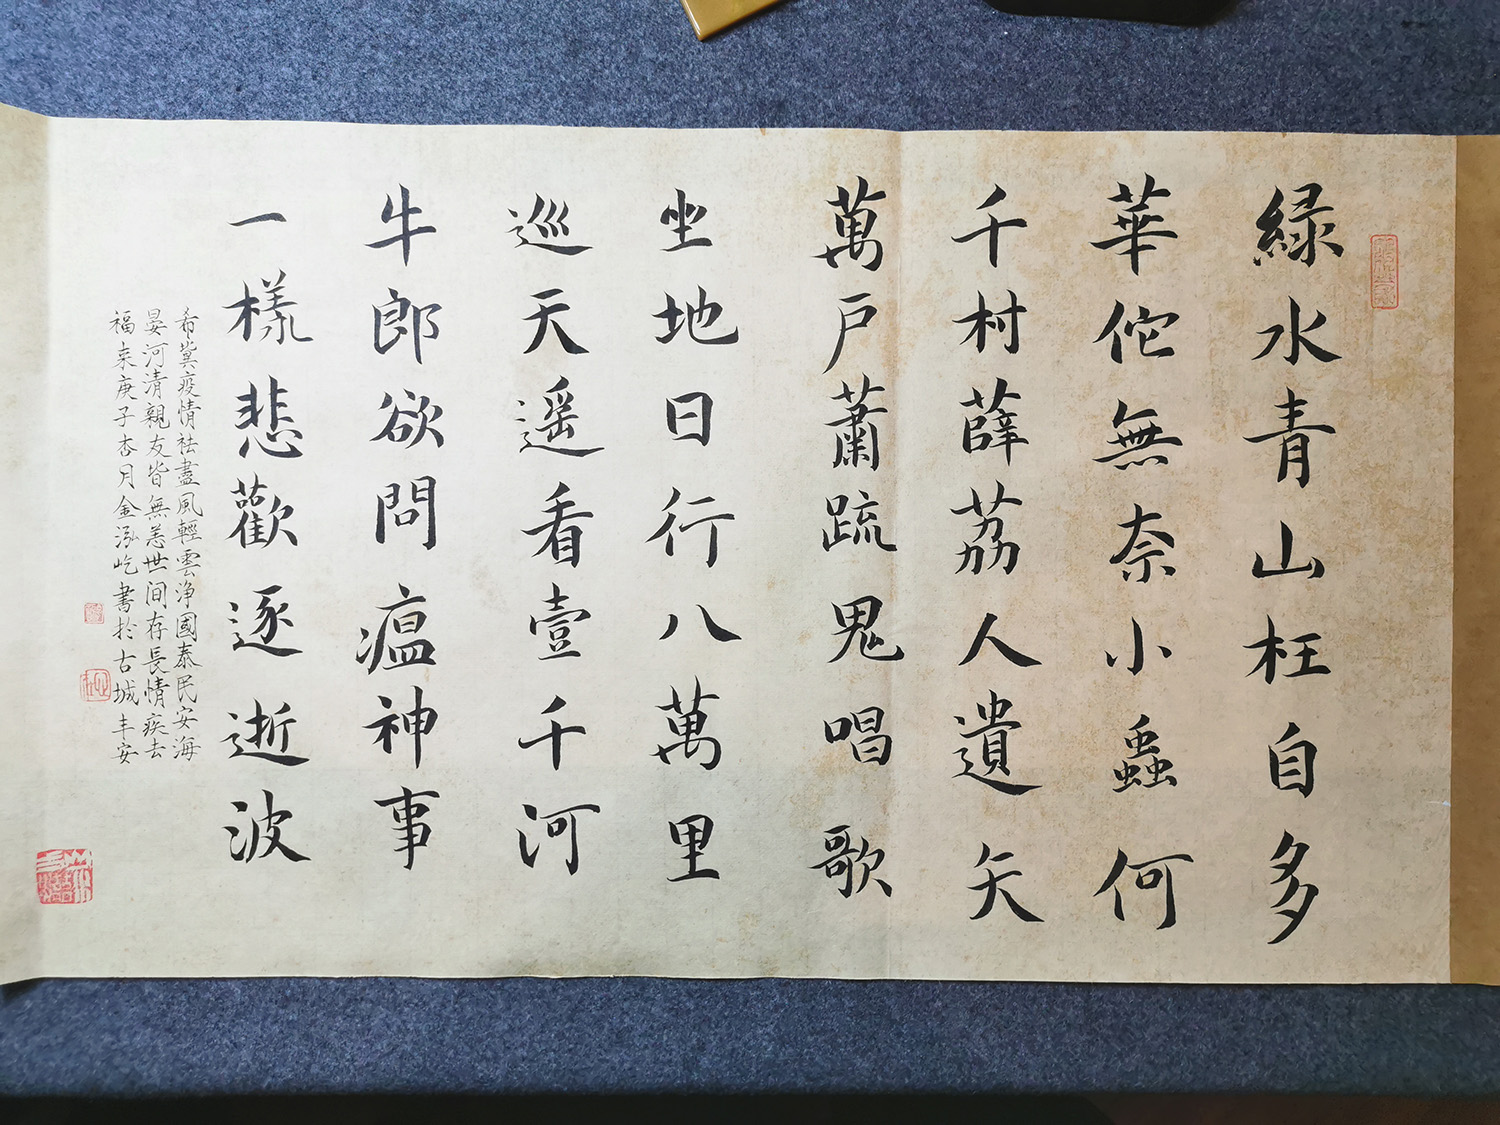 緑水青山枉自多
華佗無奈小蟲何
千村薜荔人遺矢
萬戶蕭疏鬼唱歌
坐地日行八萬里
巡天遥看壹千河
牛郎欲問瘟神事
一樣悲歡逐逝波
希冀疫情祛盡風輕雲淨國泰民安海
晏河清親友皆無恙世间存長情疾去
福来庚子杏月金泓屹書於古城丰安